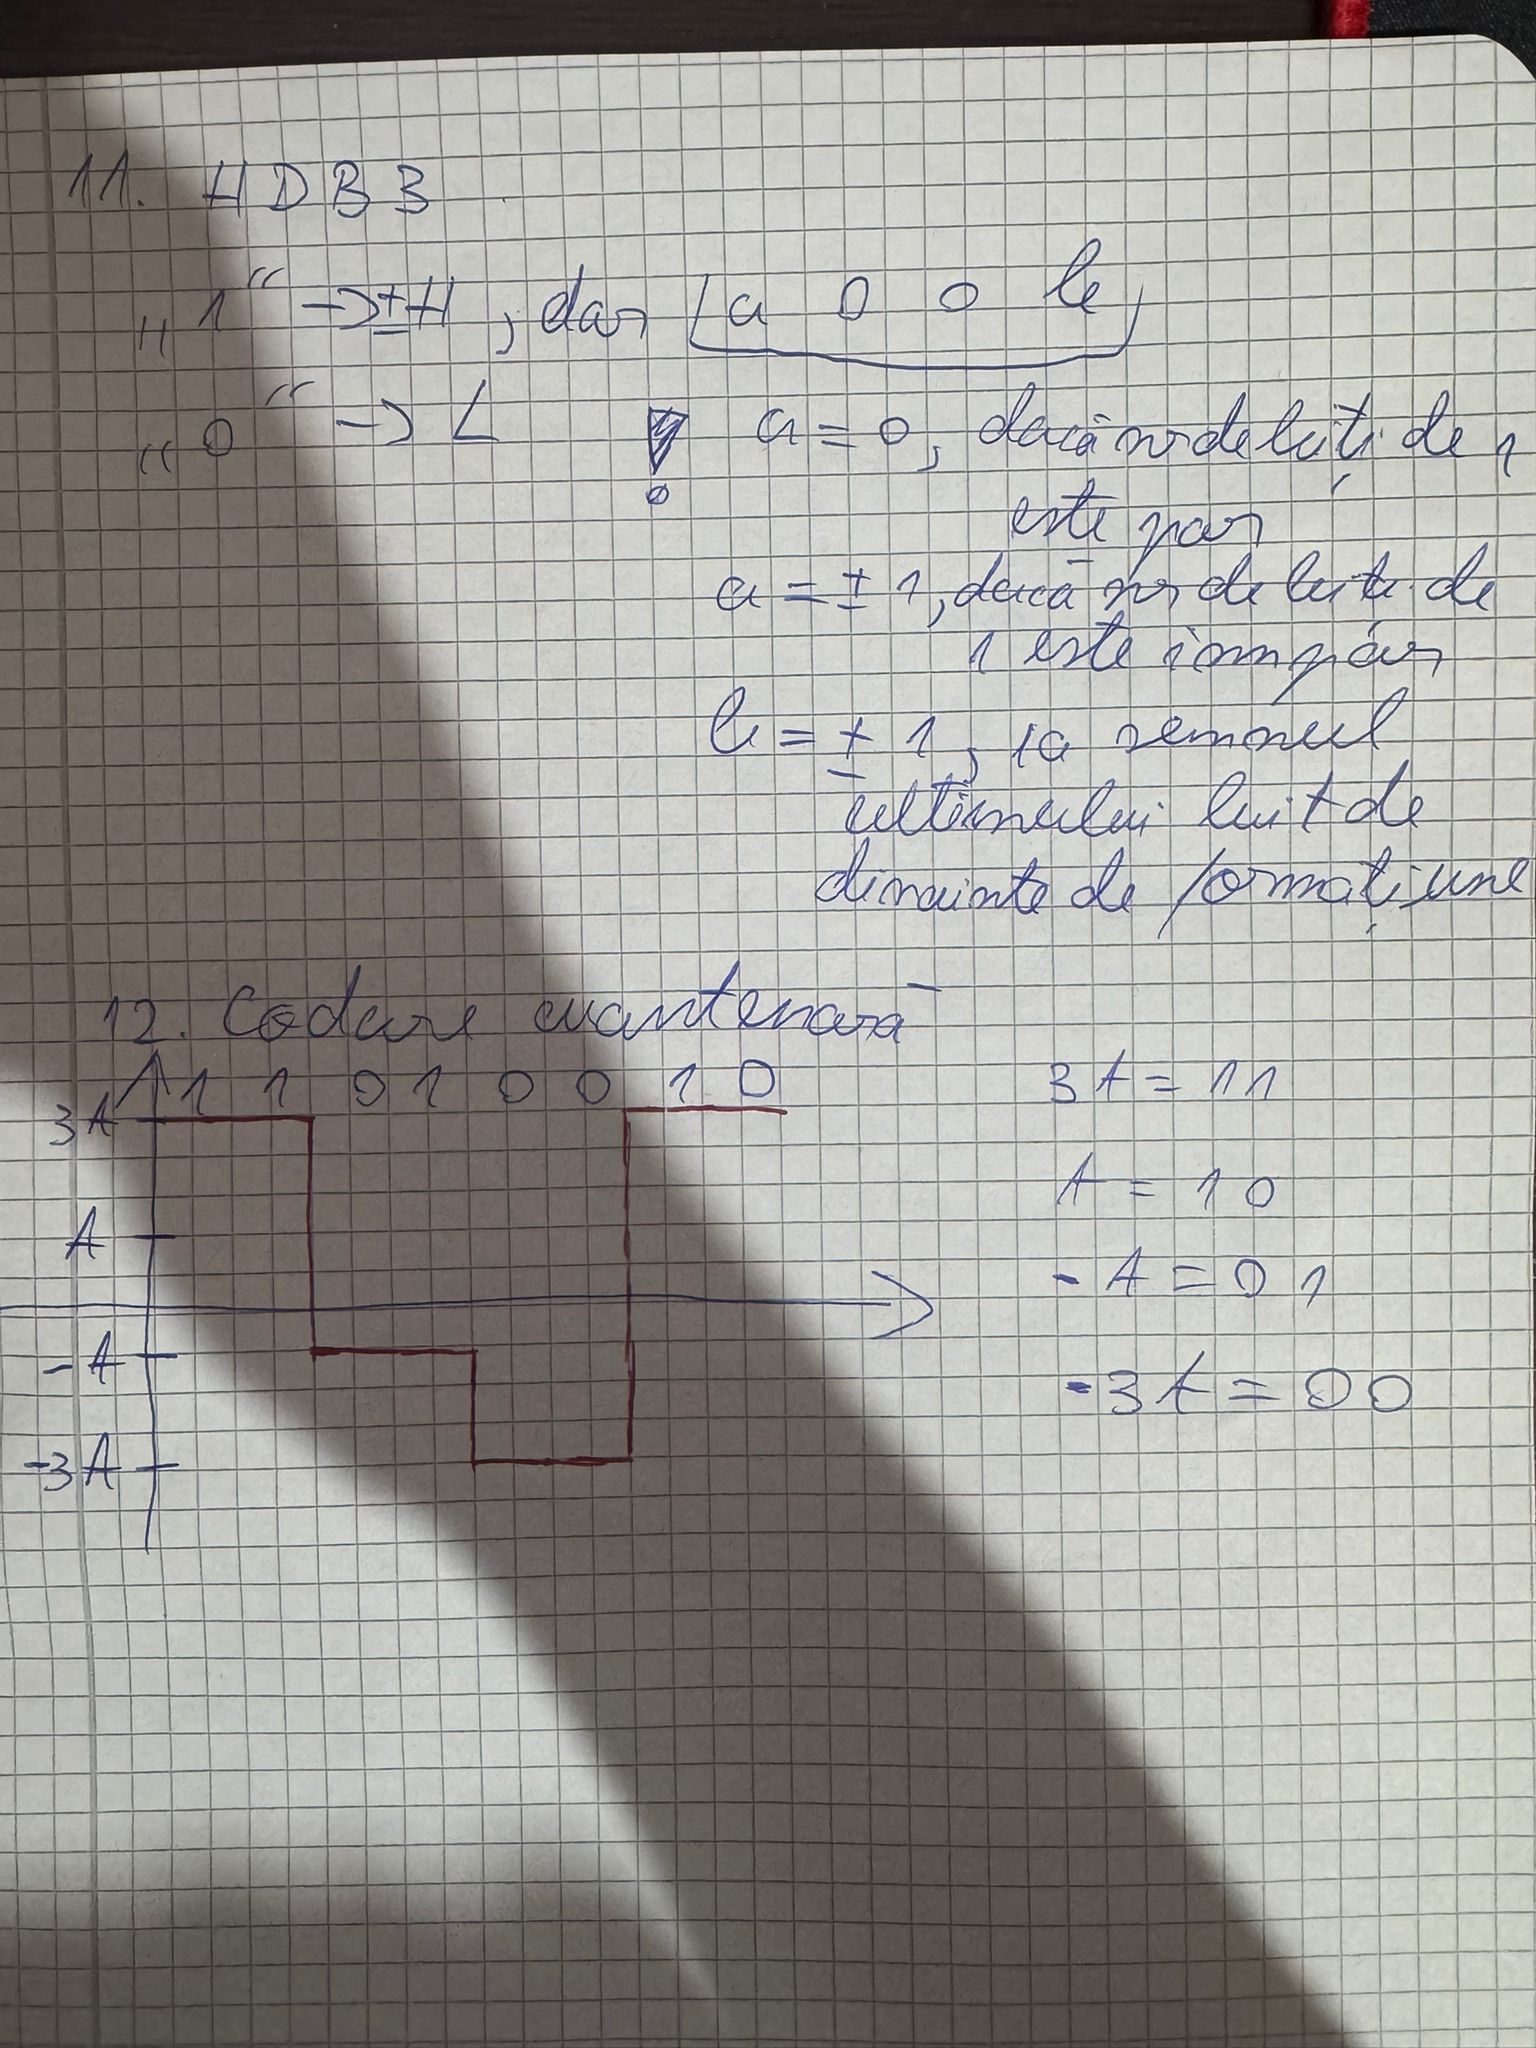 11. HDB3
„1“ → ±H, dar a 0 0 b
“0“ → L ! a = 0, dacă nr de biți de 1
este par
a = ±1, dacă nr de biți de
1 este impar
b = ±1, ia semnul
ultimului bit de
dinainte de formațiune
12. Codare cuantenară
1 1 0 1 0 0 1 0
3A
A
-A
-3A
3A = 11
A = 10
-A = 01
-3A = 00